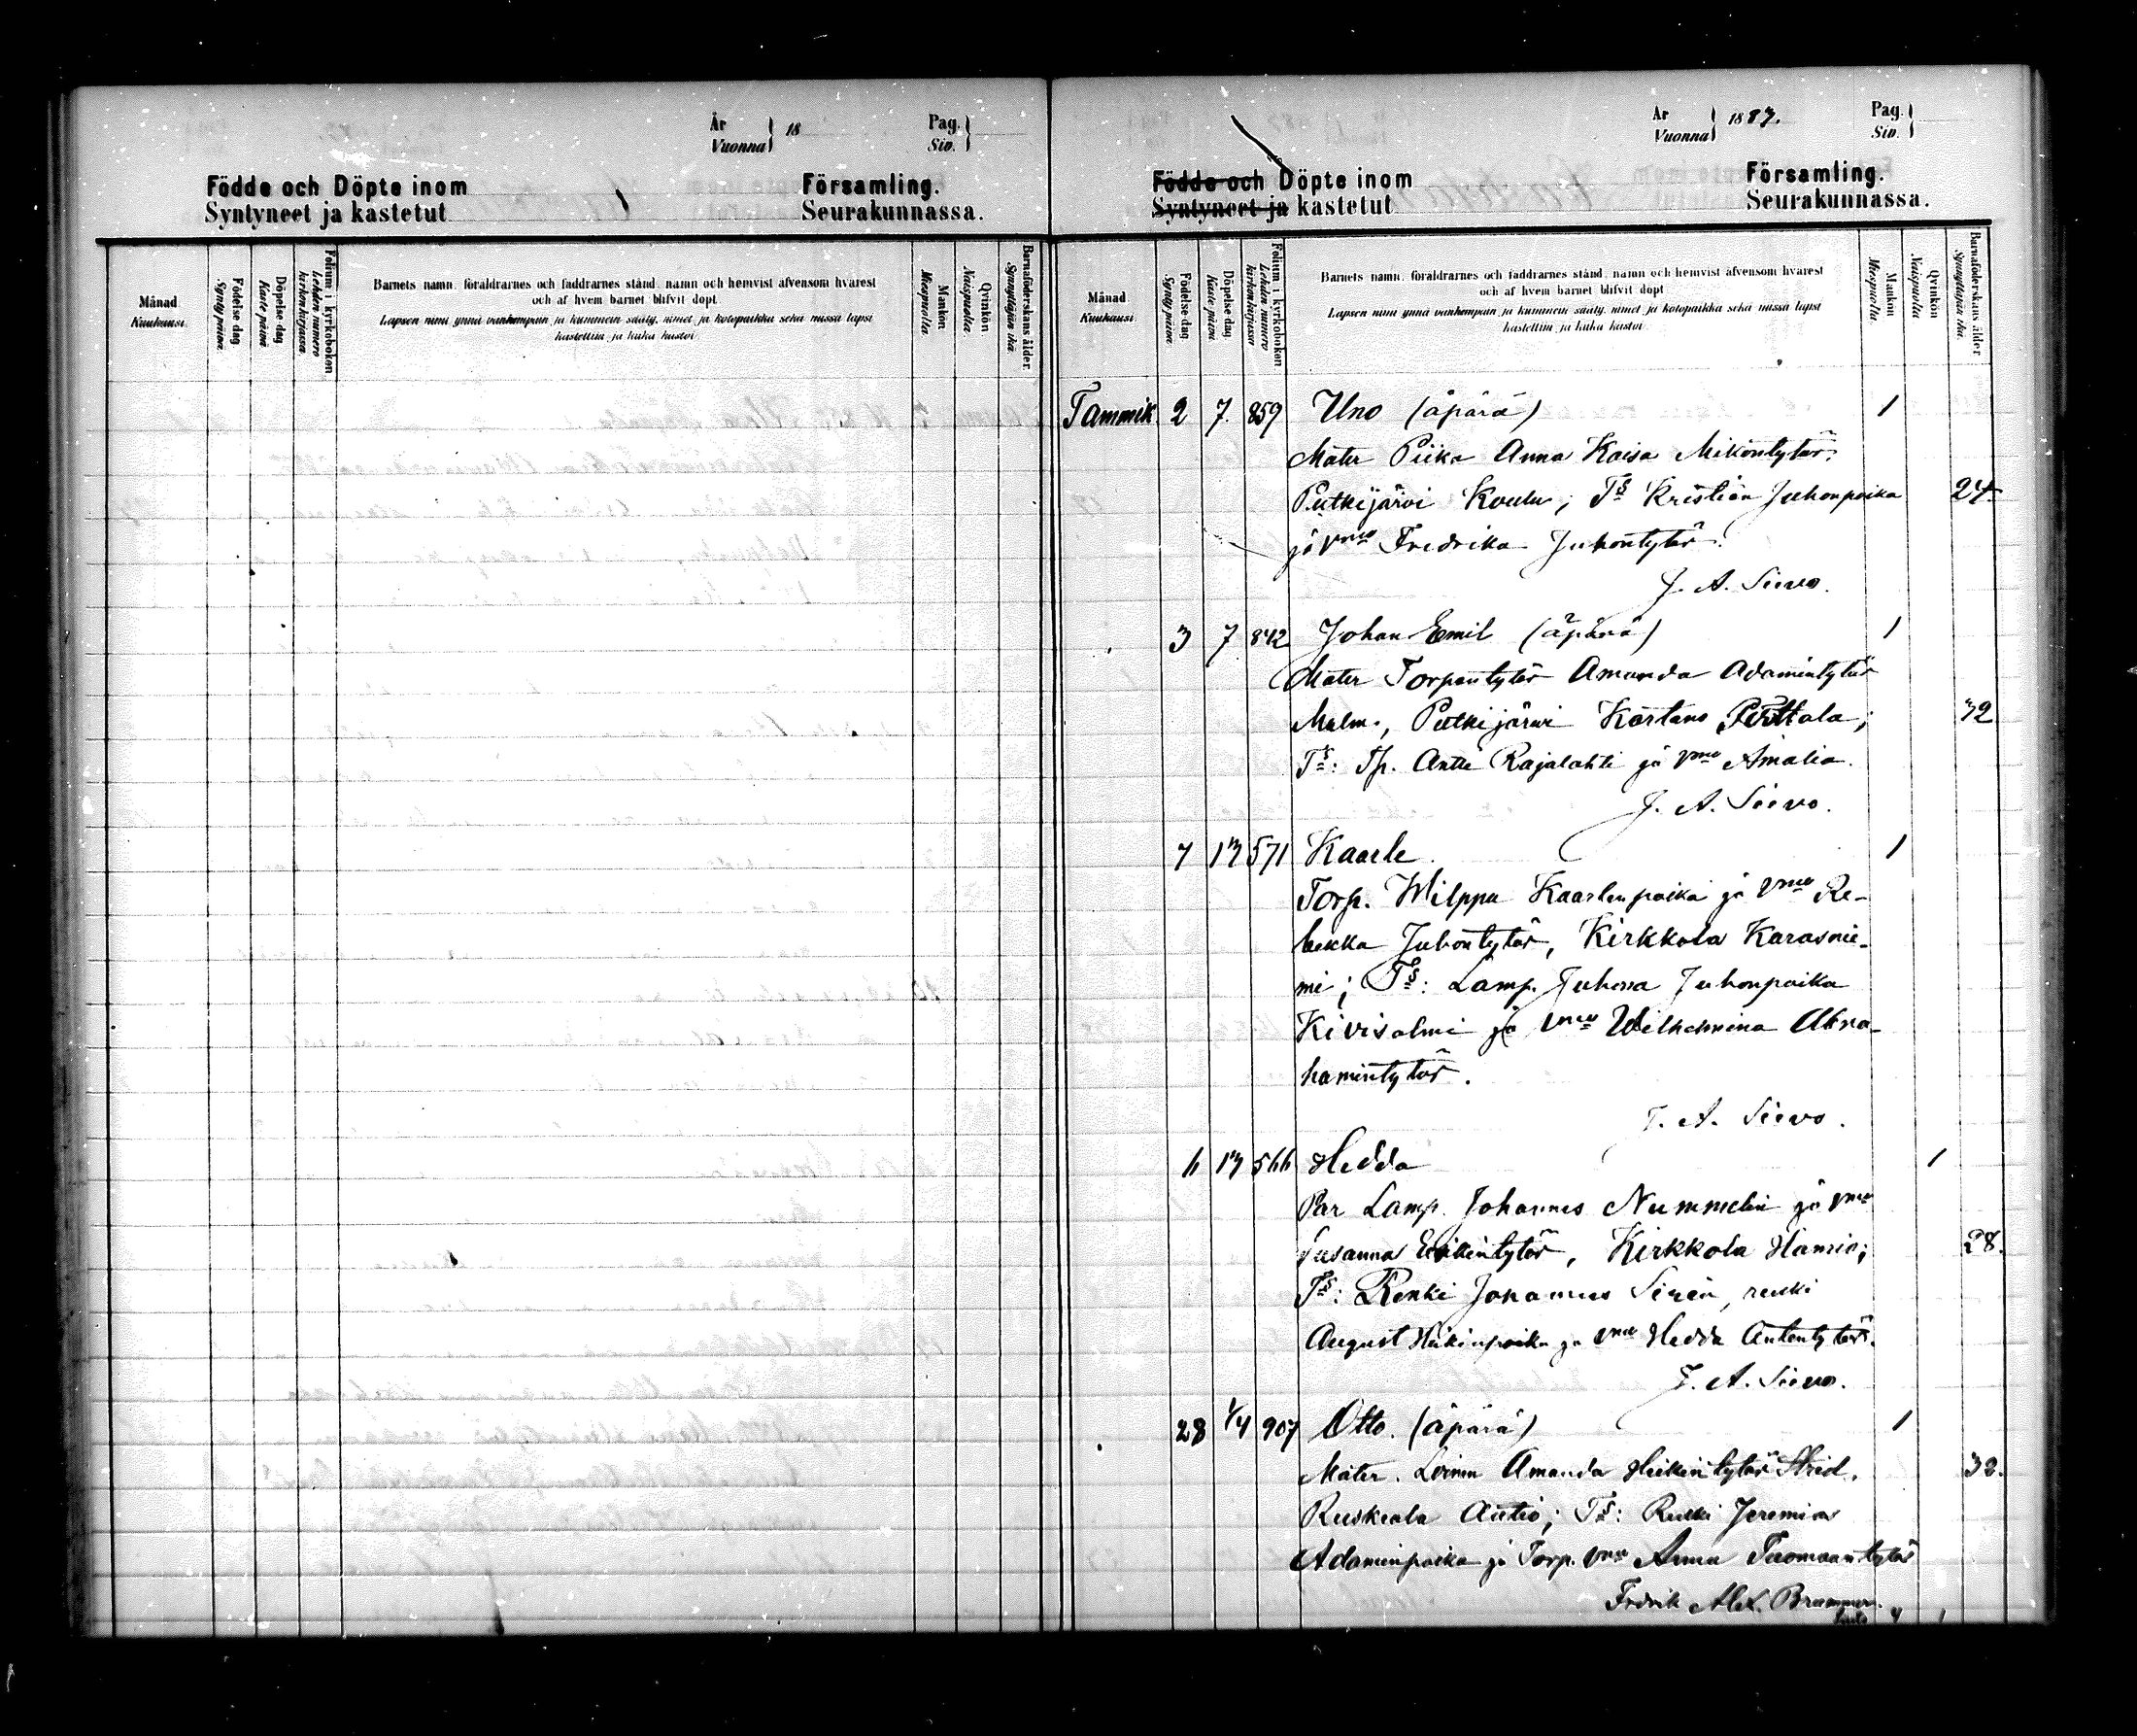 År Vuonna } 18
Pag. Siv. }
Födde och Döpte inom Församling.
Syntyneet ja kastetut Seurakunnassa.
Månad Kuukausi.
Födelse dag. Synty päivä.
Döpelse dag. Kaste päivä
Folium i kyrkoboken Lehden numero kirkon kirjassa.
Barnets namn, föräldrarnes och faddrarnes stånd, namn och hemvist äfvensom hvarest
och af hvem barnet blifvit döpt
Lapsen nimi ynnä vanhempain ja kummein sääty, nimet ja kotopaikka sekä missä lapsi
kastettiin ja kuka kastoi
Mankön Miespuolta.
Qvinkön Naispuolta.
Barnaföderskans ålder. Synnyttäjän ikä
År Vuonna } 1887.
Pag. Siv. }
Födde och Döpte inom Församling.
Syntyneet ja kastetut Seurakunnassa.
Månad Kuukausi
Födelse dag Synty päivä.
Döpelse dag. Kaste päivä
Folium i kyrkoboken Lehden numero kirkonkirjassa
Barnets namn, föräldrarnes och faddrarnes stånd, namn och hemvist äfvensom hvarest
och af hvem barnet blifvit döpt
Lapsen nimi ynnä vanhempain ja kummein sääty, nimet ja kotopaikka sekä missä lapsi
kastettiin ja kuka kastoi
Mankön Miespuolta.
Qvinkön Naispuolta
Barnaföderskans ålder Synnyttäjän ikä.
Tammik. 2 7. 859 Uno (äpärä) 1
Mater Piika Anna Kaisa Mikontytär,
Putkijärvi Koulu; Ts Kristian Juhonpoika 24
ja vmo Fredrika Juhontytär.
J. A. Siivo.
3 7 842 Johan Emil (äpärä) 1
Mater Torpantytär Amanda Adamintytär
Malm., Putkijärvi Kärtano Perttala; 32
Ts: Tp. Antti Rajalahti ja vmo Amalia.
J. A. Siivo.
7 13 571 Kaarle. 1
Torp. Wilppu Kaarlenpoika ja vmo Re-
bekka Juhontytär, Kirkkola Karasnie-
mi; Ts: Lamp. Juhana Juhonpoika
Kivisalmi ja vmo Wilhelmina Abra-
hamintytär.
J. A. Siivo.
6 13 566 Hedda 1
Par Lamp. Johannes Nummelin ja vmo
Susanna Erikintytär, Kirkkola 28.
Ts: Renki Johannes Sirén, renki
August Heikinpoika ja vmo Hedda Antintytär.
J. A. Siivo.
28 1/4 907 Otto. (äpärä) 1
Mater. Loinen Amanda Heikintytär Strid, 32.
Ruskeala Autio; Ts: Renki Jeremias
Adaminpoika ja Torp. vmo Anna Tuomaantytär
Fredrik Alex. Brummer.
4 1